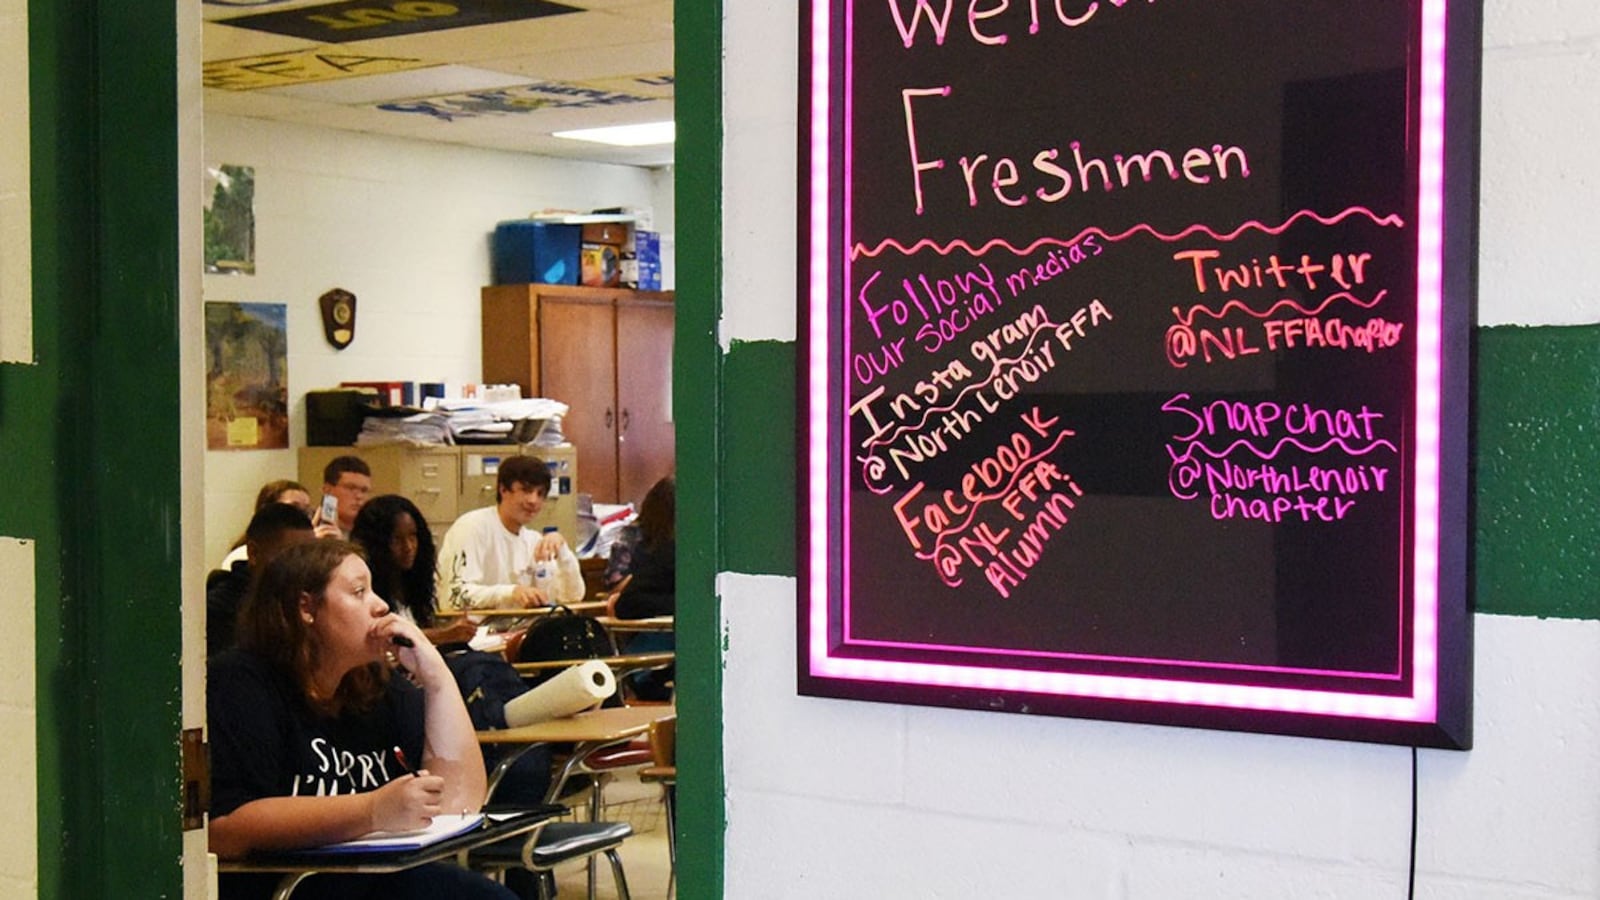 Freshmen
Follow
our social medias
Instagram
@North Lenoir FFA
Facebook
@NL FFA
Alumni
Twitter
@NLFFAChapter
Snapchat
@NorthLenoir
Chapter
FFA
SORRY
I'M